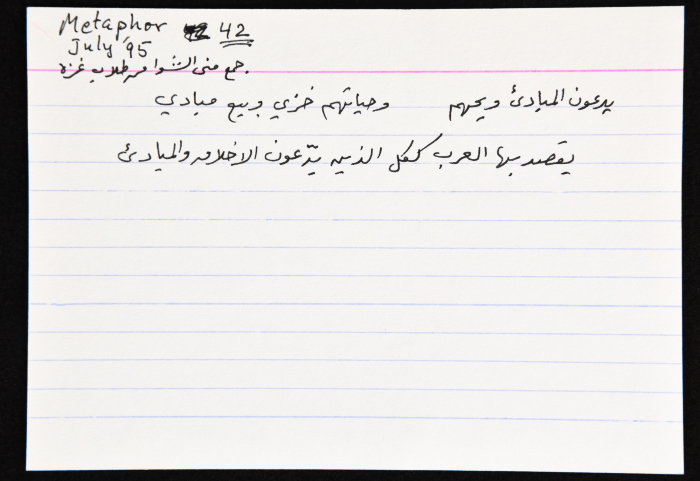 Metaphor 42
July '95
جمع منى الشوا من طلاب غزة.
يدعون المبادئ ويحهم وحياتهم خزي وبيع مبادي
يقصد بها العرب ككل الذين يدّعون الاخلاق والمبادئ